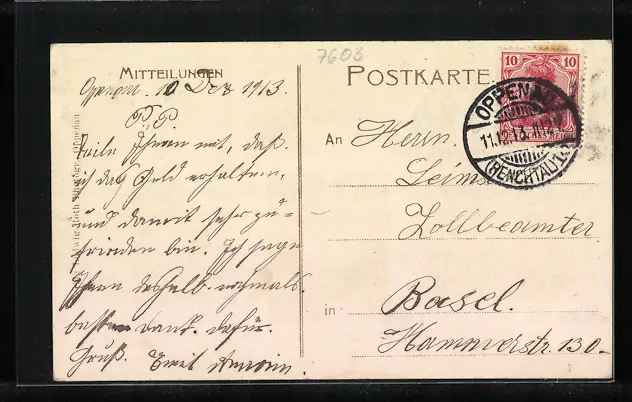 7603
MITTEILUNGEN
Oppenau. 10 Dez 1913.
P. P.
Teile Ihnen mit, daß
ich das Geld erhalten,
und damit sehr zu-
frieden bin. Ich sage
Ihnen deshalb nochmals
besten Dank dafür.
Gruß. Emil
POSTKARTE.
An Herrn.
Zollbeamter
in Basel.
Hammerstr. 130-
10 10
OPPENAU
11.12.13.
(RENCHTAL)